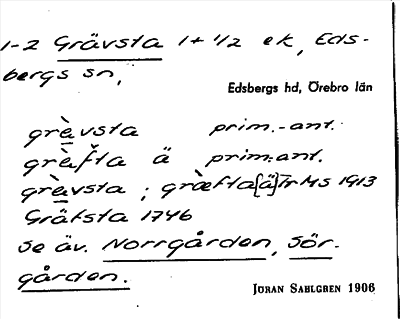 1-2 Grävsta 1+1/2 ek, Eds-
bergs sn,
Edsbergs hd, Örebro län
grὲvsta prim.-ant.
grὲfta ä prim.ant.
grὲvsta ; græfta[ä] TrMs 1913
Gräfsta 1746
Se äv. Norrgården, Sör-
gården.
JÖRAN SAHLGREN 1906